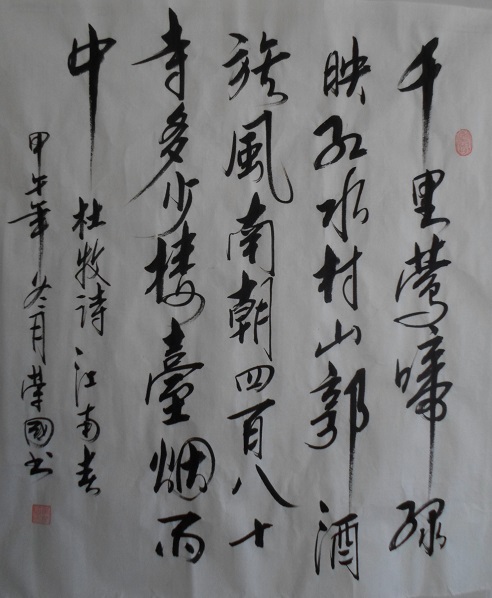 千里莺啼绿
映红水村山郭酒
旗風南朝四百八十
寺多少楼臺烟雨
中
杜牧诗江南春
甲午年冬月荣國书